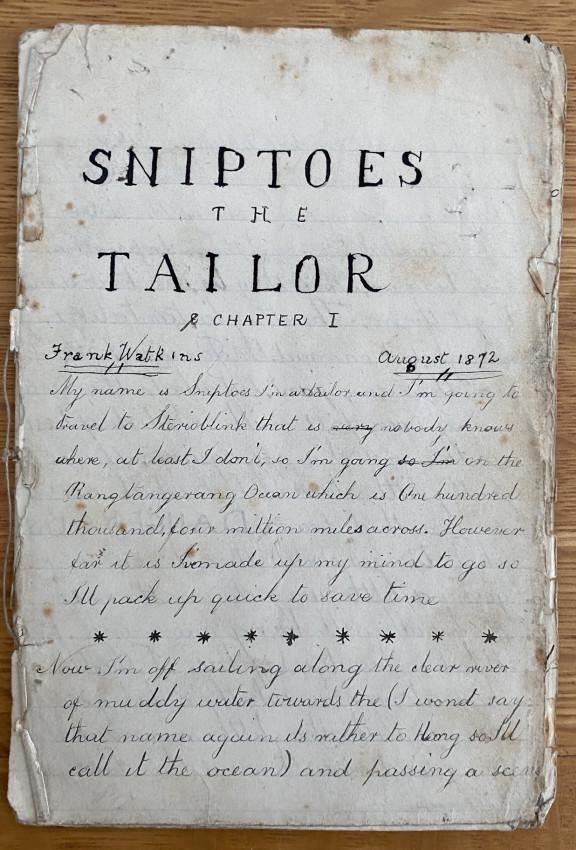 SNIPTOES
THE
TAILOR
CHAPTER I
Frank Watkins August 1872
My name is Sniptoes I'm a tailor and I'm going to
travel to Sterioblink that is very nobody knows
where, at least I don't, so I'm going so I'm on the
Rangtangerang Ocean which is One hundred
thousand, four million miles across. However
far it is I've made up my mind to go so
I'll pack up quick to save time
* * * * * * * * * *
Now I'm off sailing along the clear river
of muddy water towards the (I wond say
that name again its rather to long so I'll
call it the ocean) and passing a